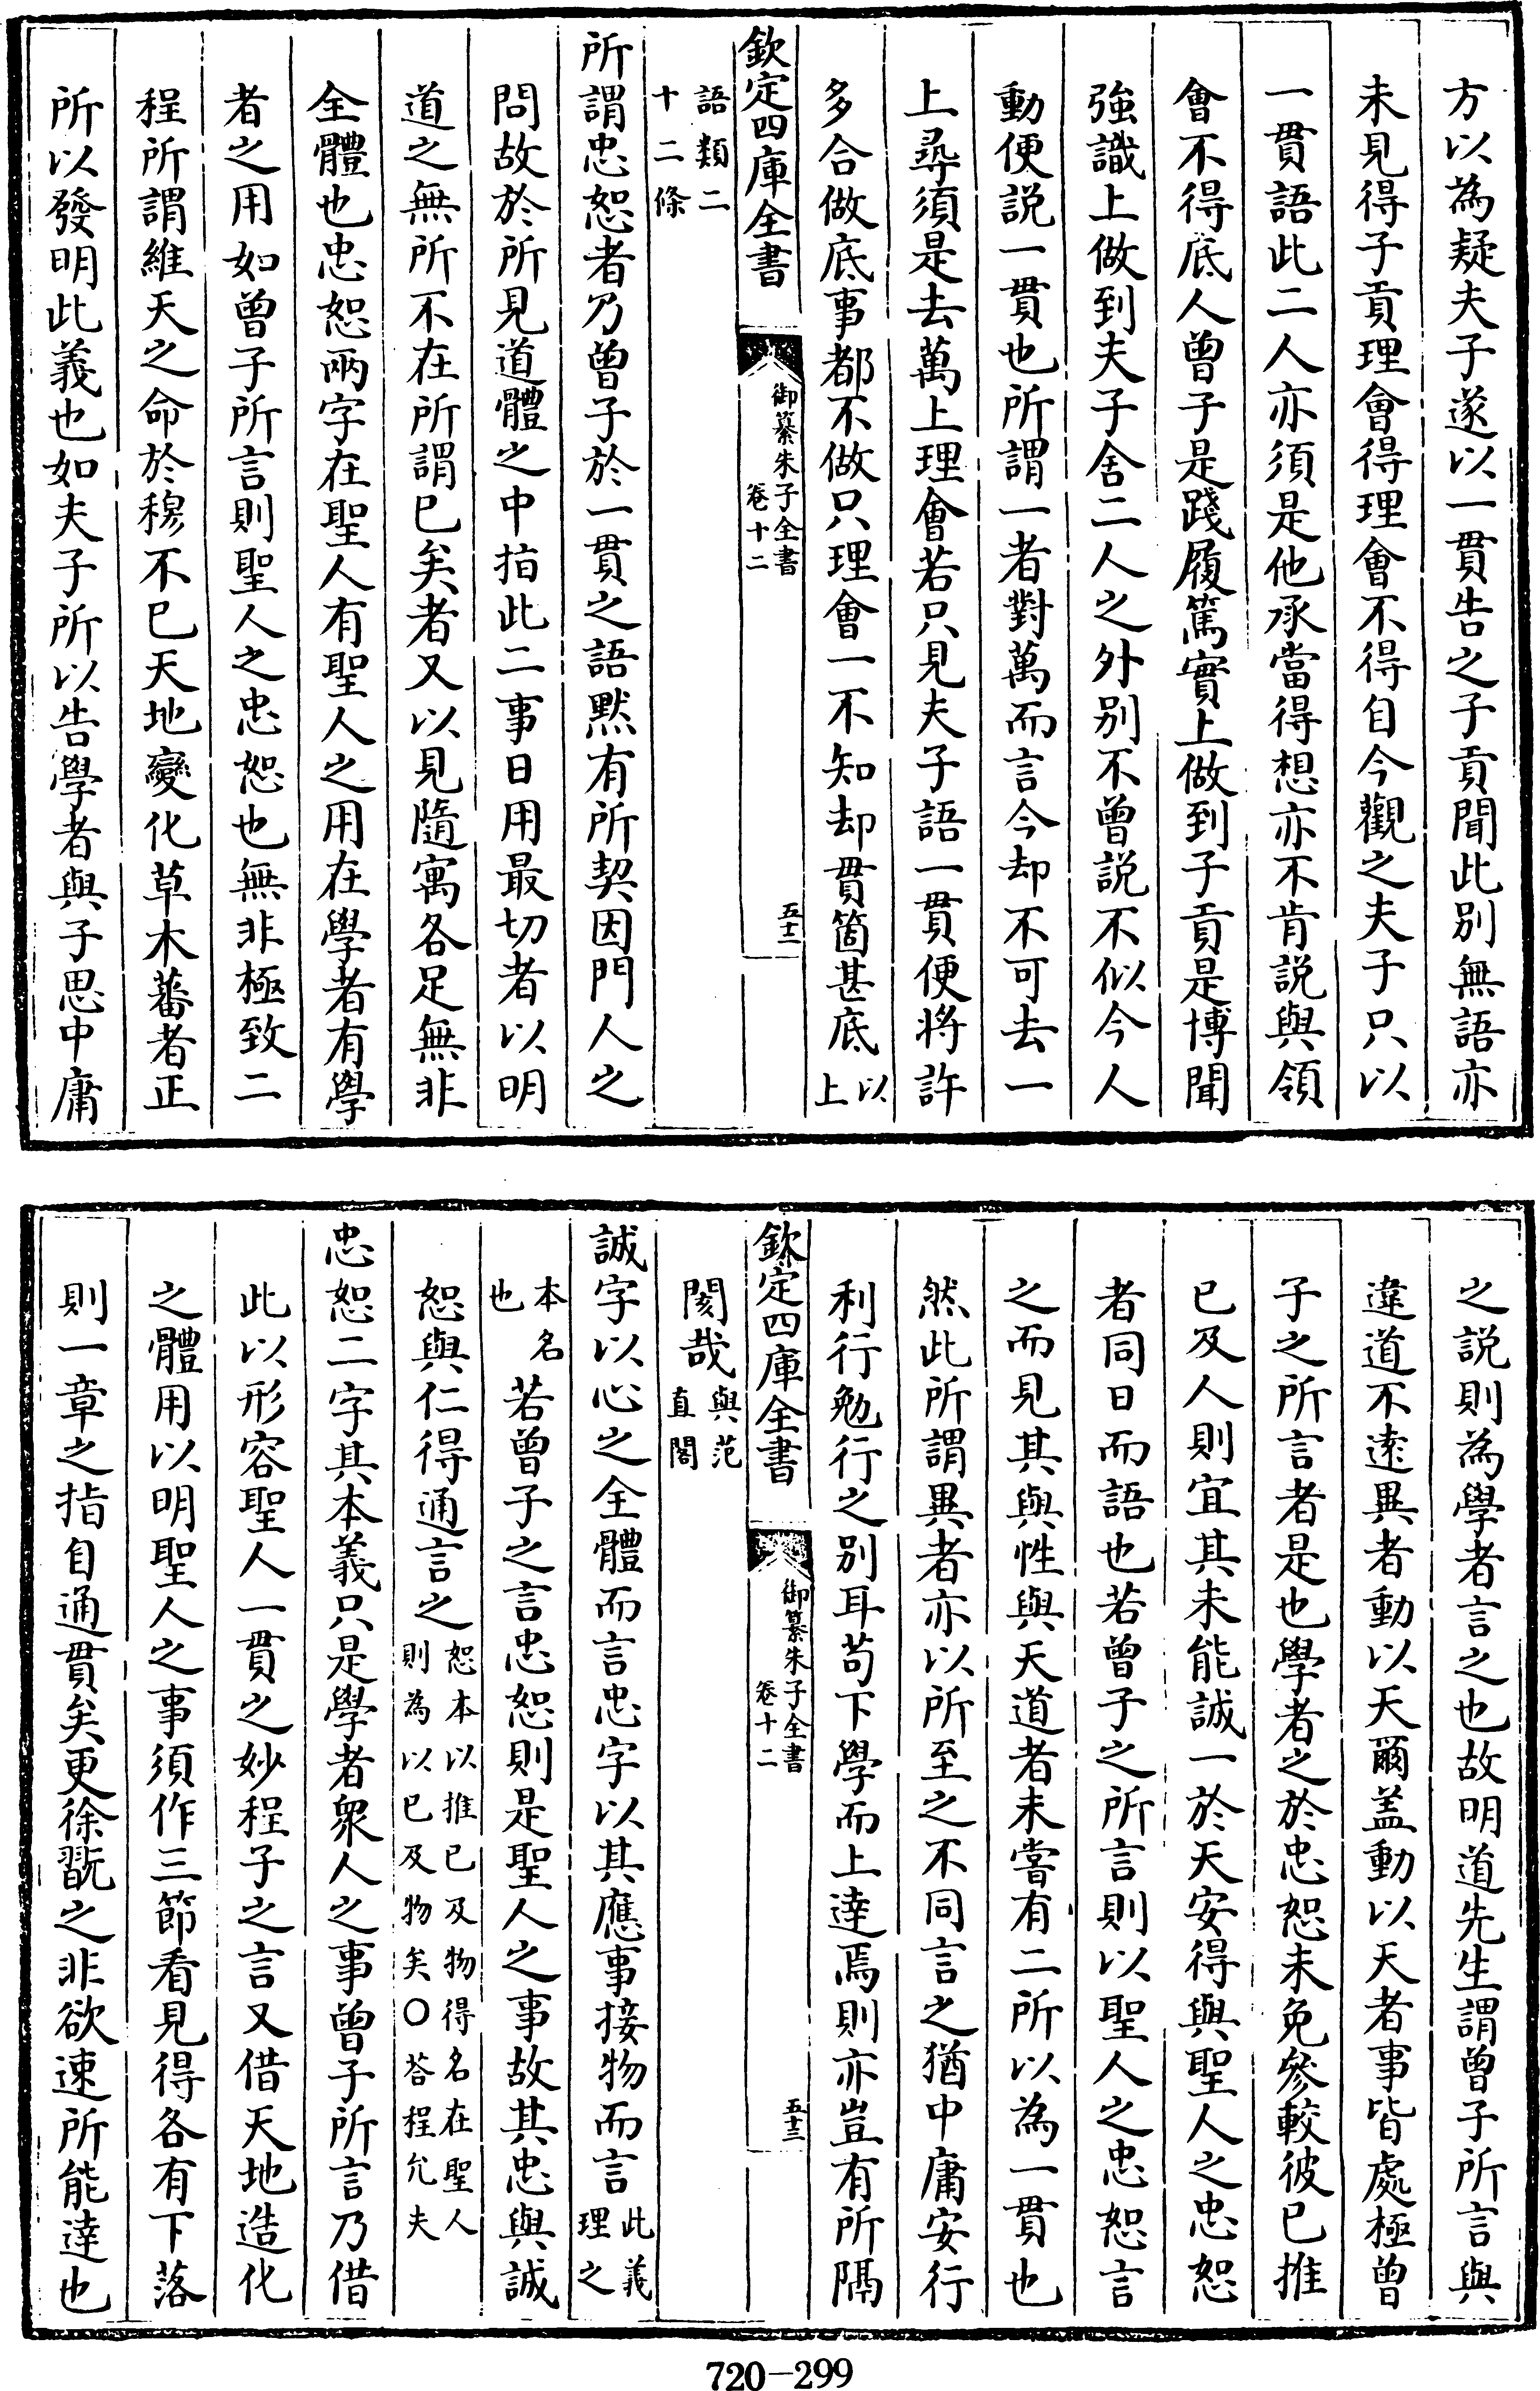 方以為疑夫子遂以一貫告之子貢聞此别無語亦
未見得子貢理會得理會不得自今觀之夫子只以
一貫語此二人亦須是他承當得想亦不肯説與領
會不得底人曾子是踐履篤實上做到子貢是博聞
強識上做到夫子舍二人之外别不曾説不似今人
動便説一貫也所謂一者對萬而言今却不可去一
上尋須是去萬上理會若只見夫子語一貫便將許
多合做底事都不做只理會一不知却貫箇甚底以
上
欽定四庫全書
御纂朱子全書
卷十二
五十二
語類二
十二條
所謂忠恕者乃曾子於一貫之語黙有所契因門人之
問故於所見道體之中指此二事日用最切者以明
道之無所不在所謂已矣者又以見隨寓各足無非
全體也忠恕兩字在聖人有聖人之用在學者有學
者之用如曾子所言則聖人之忠恕也無非極致二
程所謂維天之命於穆不已天地變化草木蕃者正
所以發明此義也如夫子所以告學者與子思中庸
之説則為學者言之也故明道先生謂曾子所言與
違道不逺異者動以天爾盖動以天者事皆處極曾
子之所言者是也學者之於忠恕未免參較彼已推
已及人則宜其未能誠一於天安得與聖人之忠恕
者同日而語也若曾子之所言則以聖人之忠恕言
之而見其與性與天道者未嘗有二所以為一貫也
然此所謂異者亦以所至之不同言之猶中庸安行
利行勉行之别耳苟下學而上達焉則亦豈有所隔
欽定四庫全書
御纂朱子全書
卷十二
五十三
閡哉與范
直閣
誠字以心之全體而言忠字以其應事接物而言此義
理之
本名
也若曾子之言忠恕則是聖人之事故其忠與誠
恕與仁得通言之恕本以推已及物得名在聖人
則為以已及物矣○答程允夫
忠恕二字其本義只是學者衆人之事曾子所言乃借
此以形容聖人一貫之妙程子之言又借天地造化
之體用以明聖人之事須作三節看見得各有下落
則一章之指自通貫矣更徐翫之非欲速所能達也
720-299